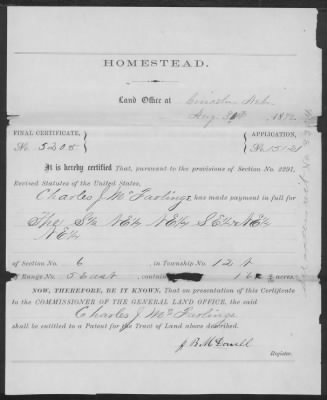 HOMESTEAD.
Land Office at Lincoln Neb.
Aug. 187
FINAL CERTIFICATE, APPLICATION,
No. 5208 No. 15121
It is hereby certified That, pursuant to the provisions of Section No. 2291,
Revised Statutes of the United States,
Charles J. McFarlings, has made payment in full for
The S½ NE¼ NE¼ SE¼ NE¼
NE¼
of Section No. 6 in Township No. 12 N
of Range No. 5 East, containing 16 acres.
NOW, THEREFORE, BE IT KNOWN, That on presentation of this Certificate
to the COMMISSIONER OF THE GENERAL LAND OFFICE, the said
Charles J. McFarlings
shall be entitled to a Patent for the Tract of Land above described.
J. B. McDowell
Register.